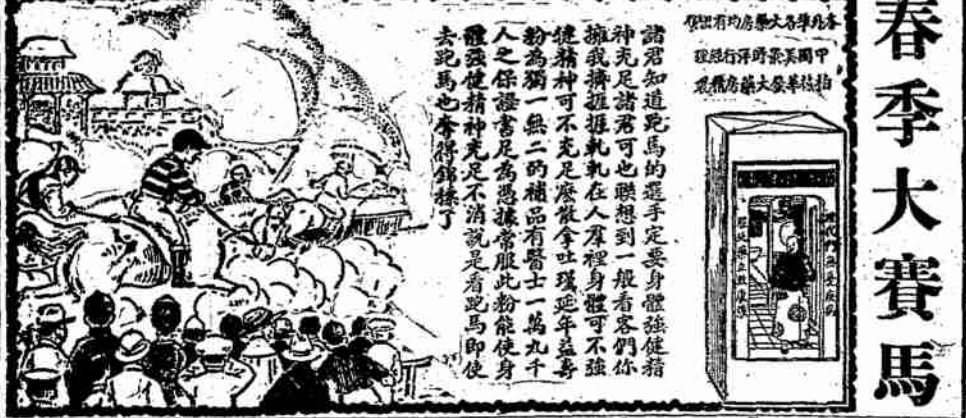 春季大賽馬
各外埠各大藥房均有出售
中國美最時洋行經理
柏林華發大藥房觀製
諸君知道跑馬的選手定要身體強健精
神充足諸君可也聯想到一般看客們你
擁我擠捱捱軋軋在人羣裡身體可不強
健精神可不充足麽散拿吐瑾延年益壽
粉為獨一無二的補品有醫士一萬九千
人之保證書足為憑據常服此粉能使身
體強健精神充足不消說是看跑馬即使
去跑馬也奪得錦標了